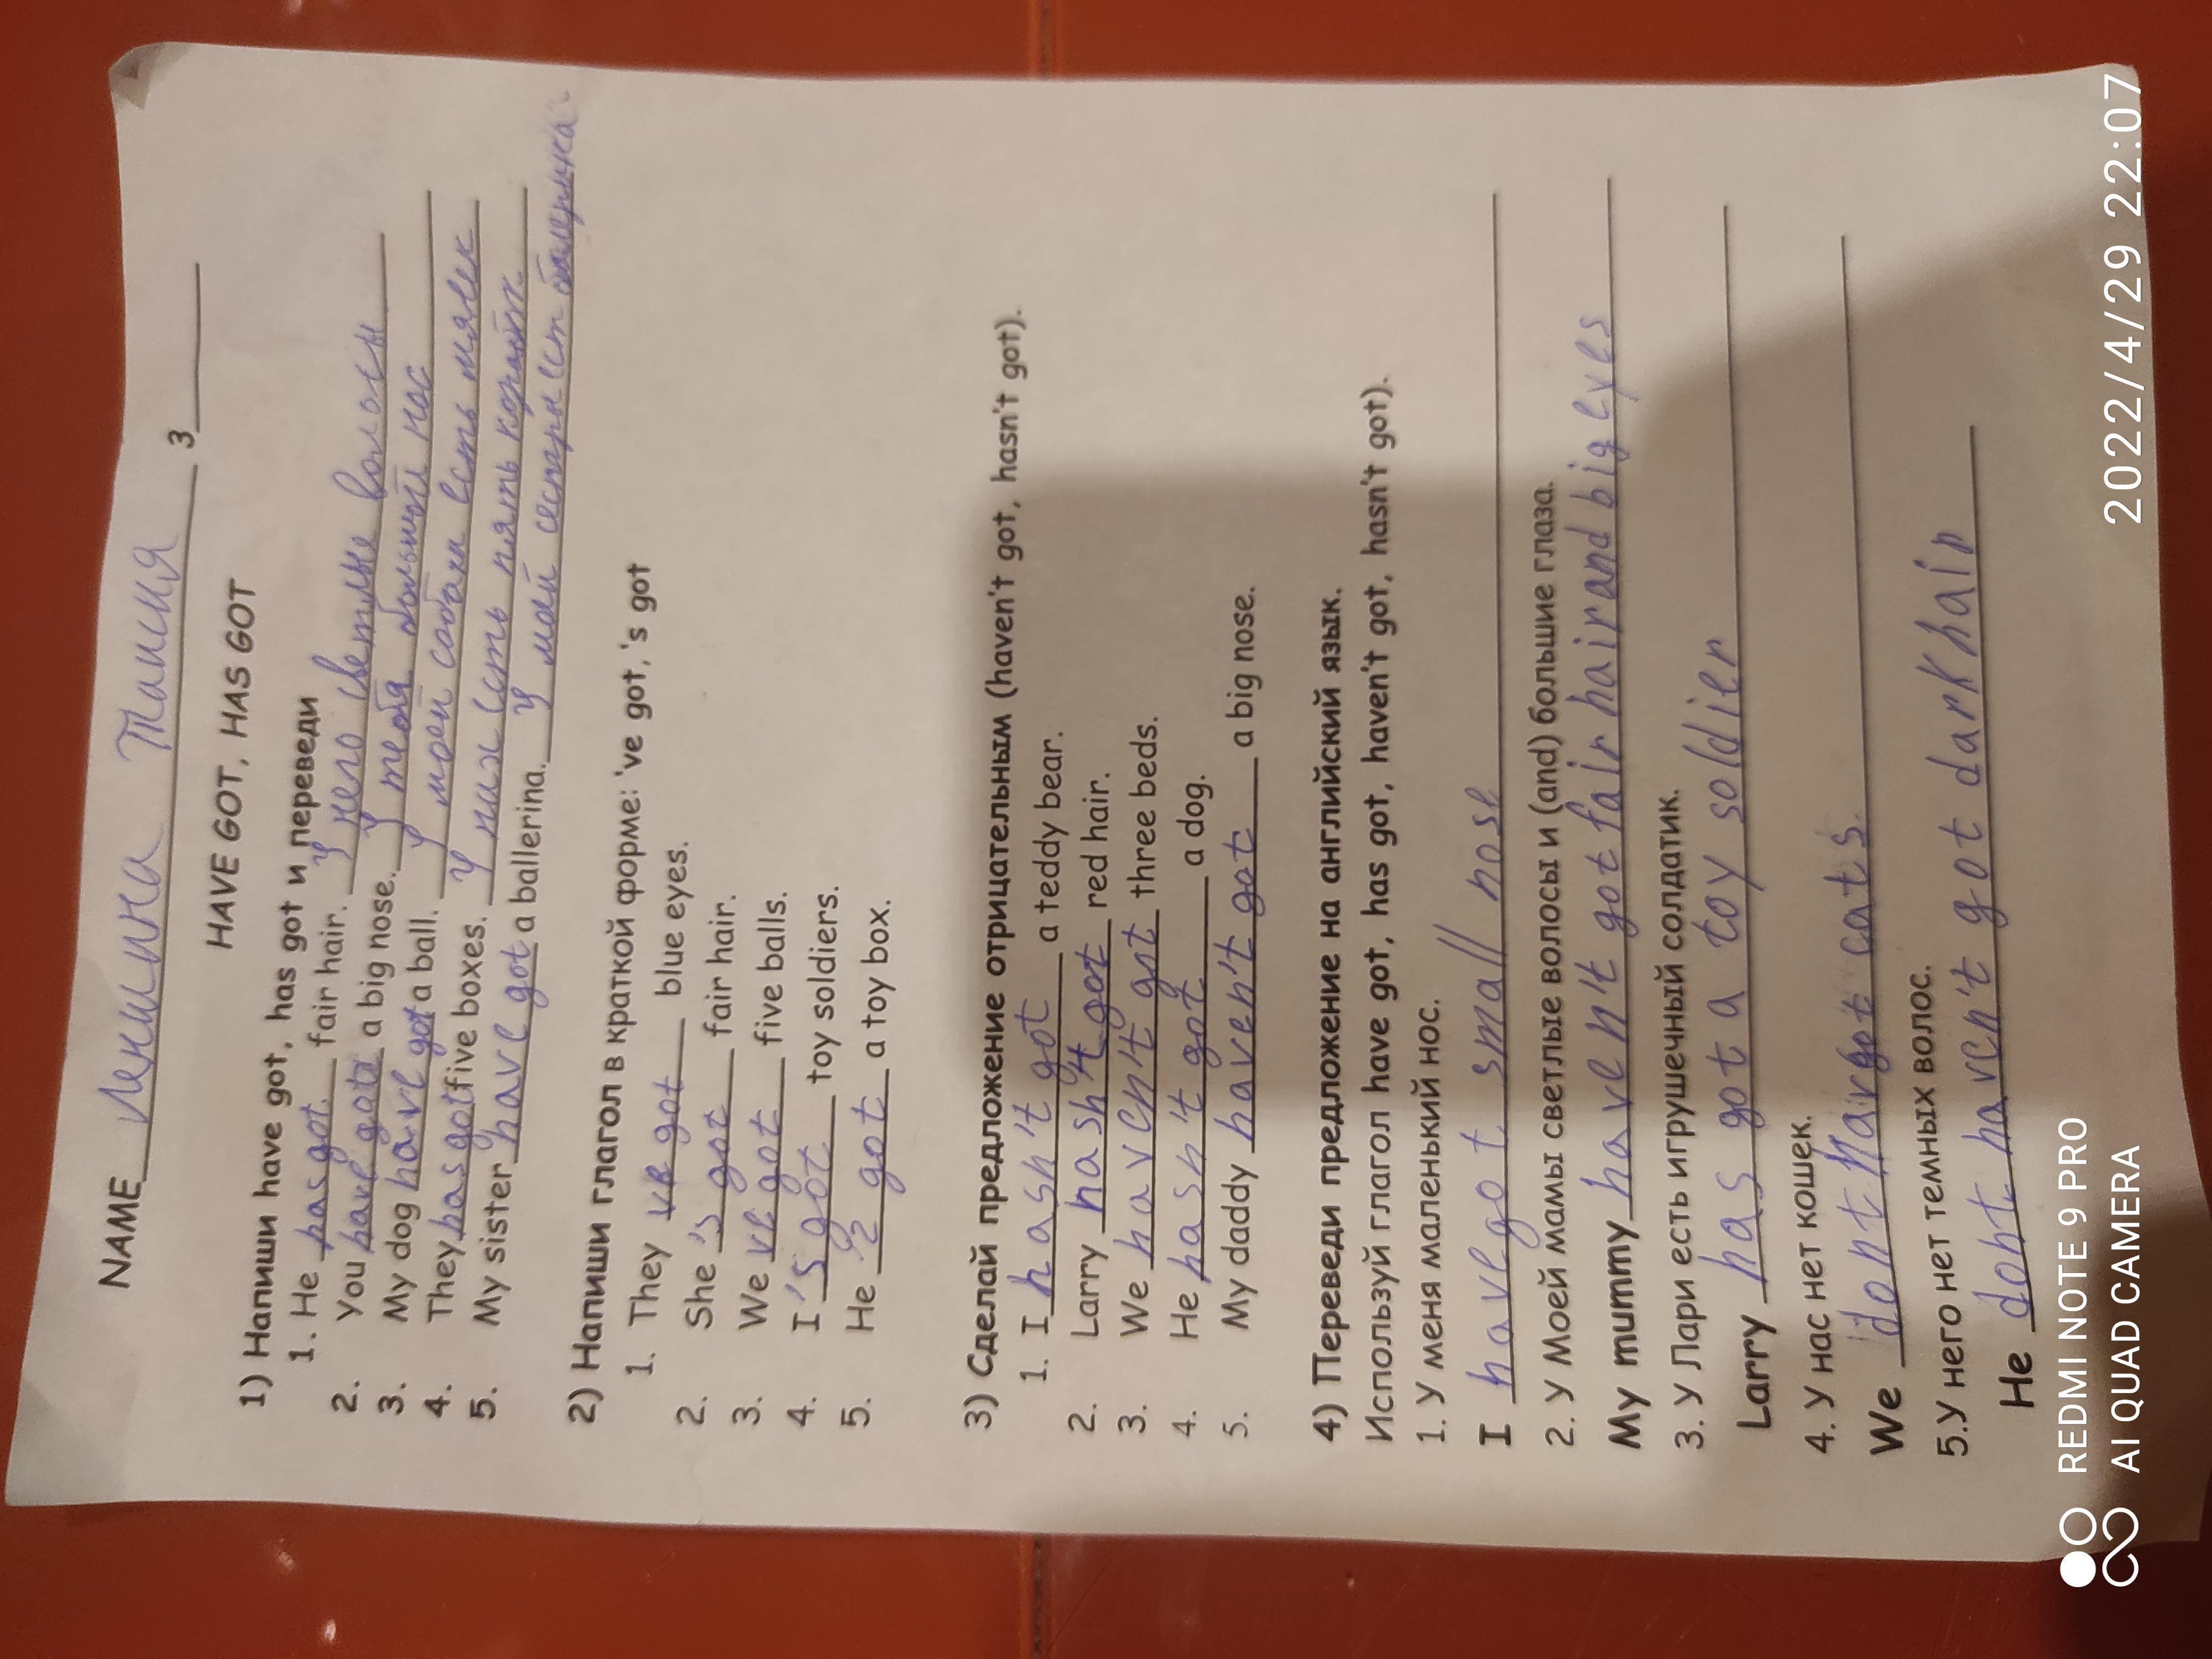 NAME Леншина Таисия 3
HAVE GOT, HAS GOT
1) Напиши have got, has got и переведи
1. He has got fair hair. У него светлые волосы
2. You have gote a big nose. У тебя большой нос
3. My dog have got a ball. У моей собаки есть мячек
4. They has got five boxes. У них есть пять коробок
5. My sister have got a ballerina. У моей сестры ест балерина
2) Напиши глагол в краткой форме: 've got, 's got
1. They ve got blue eyes.
2. She 's got fair hair.
3. We ve got five balls.
4. I 's got toy soldiers.
5. He got a toy box.
3) Сделай предложение отрицательным (haven't got, hasn't got).
1. I hasn't got a teddy bear.
2. Larry hasn't got red hair.
3. We haven't got three beds.
4. He hasn't got a dog.
5. My daddy haven't got a big nose.
4) Переведи предложение на английский язык.
Используй глагол have got, has got, haven't got, hasn't got).
1. У меня маленький нос.
I have got small nose
2. У Моей мамы светлые волосы и (and) большие глаза.
My mummy haven't got fair hair and big eyes
3. У Лари есть игрушечный солдатик.
Larry has got a toy soldier
4. У нас нет кошек.
We dont got cats
5.У него нет темных волос.
He dont haven't got dark hair
REDMI NOTE 9 PRO
AI QUAD CAMERA
2022/4/29 22:07